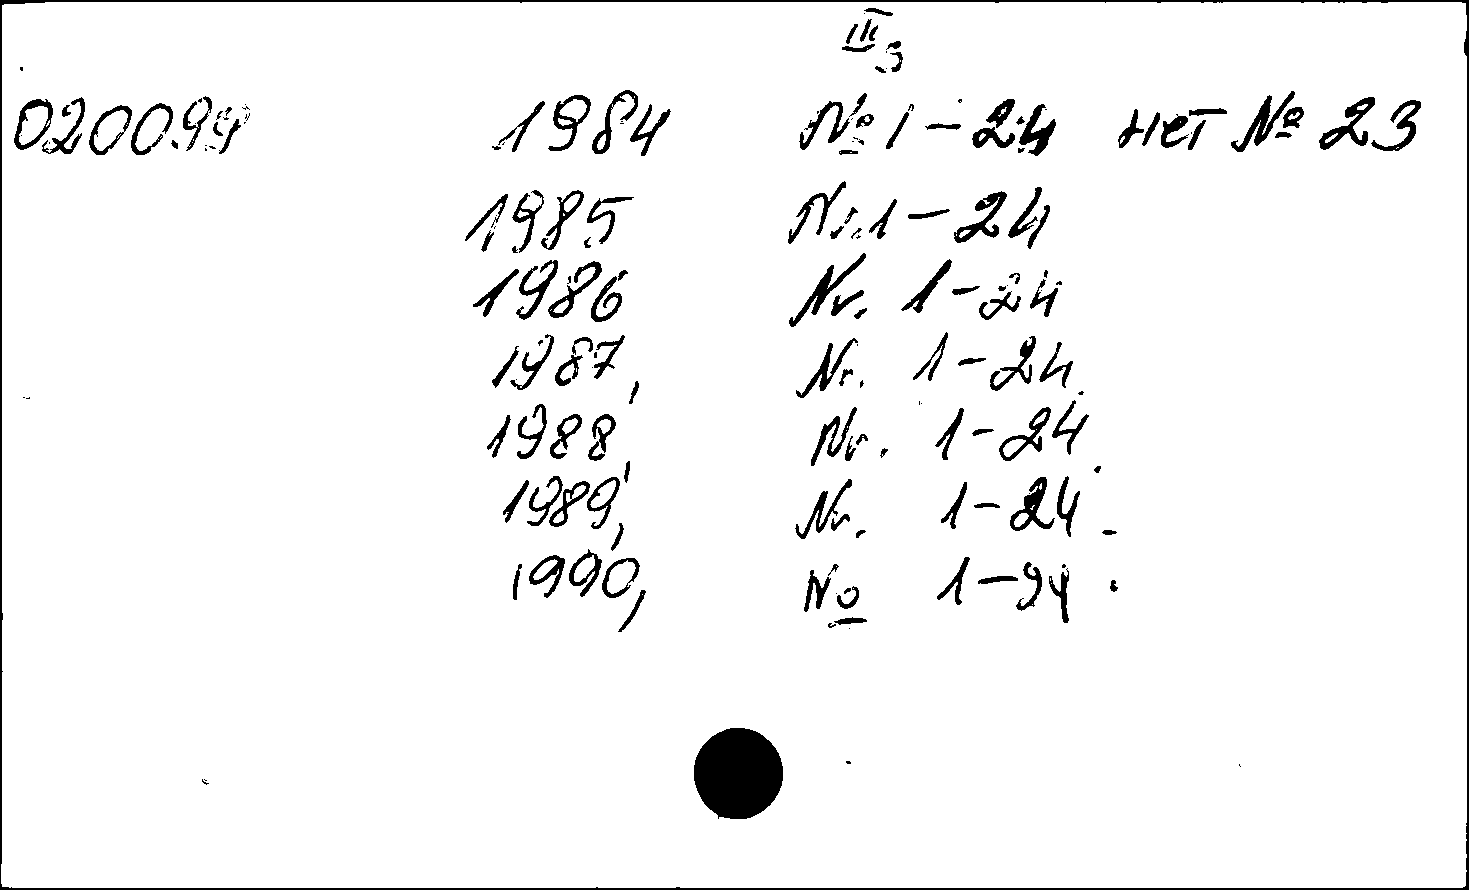 III 3
020094 1984 № 1-24 нет № 23
1985 Nr. 1-24
1986 Nr. 1-24
1987, Nr. 1-24.
1988, Nr. 1-24.
1989, Nr. 1-24.
1990, № 1-24.